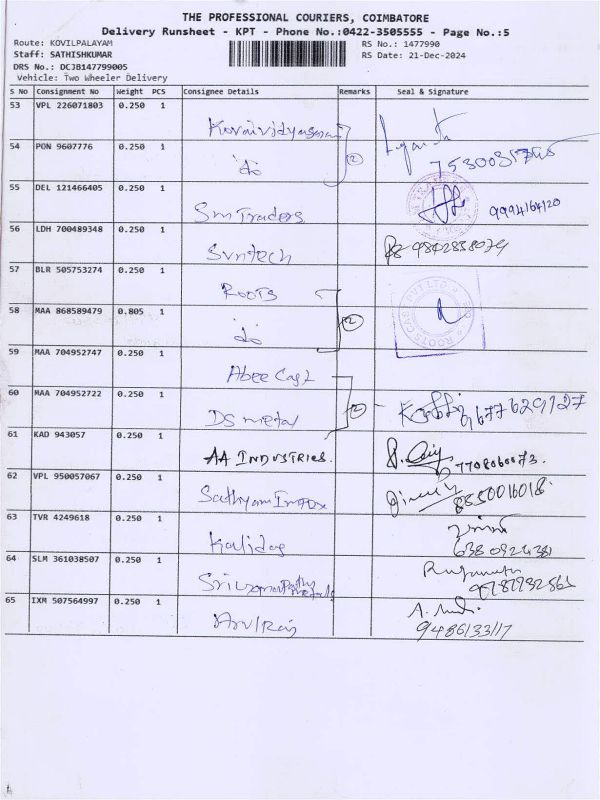 THE PROFESSIONAL COURIERS, COIMBATORE
Delivery Runsheet - KPT - Phone No.:0422-3505555 - Page No.:5
Route: KOVILPALAYAM RS No.: 1477990
Staff: SATHISHKUMAR RS Date: 21-Dec-2024
DRS No.: DCJB147799005
Vehicle: Two Wheeler Delivery
S No Consignment No Weight PCS Consignee Details Remarks Seal & Signature
53 VPL 226071803 0.250 1
54 PON 9607776 0.250 1 do 2
55 DEL 121466405 0.250 1 Sm Traders 9994164120
56 LDH 700489348 0.250 1 Suntech
57 BLR 505753274 0.250 1 Roots
58 MAA 868589479 0.805 1 do 2
59 MAA 704952747 0.250 1 Abee Cast
60 MAA 704952722 0.250 1 DS metal 2 9677629127
61 KAD 943057 0.250 1 AA INDUSTRIES. 7708060073.
62 VPL 950057067 0.250 1 8550016018.
63 TVR 4249618 0.250 1 Kalidas
64 SLM 361038507 0.250 1
65 IXM 507564997 0.250 1 Arulraj 9486133117